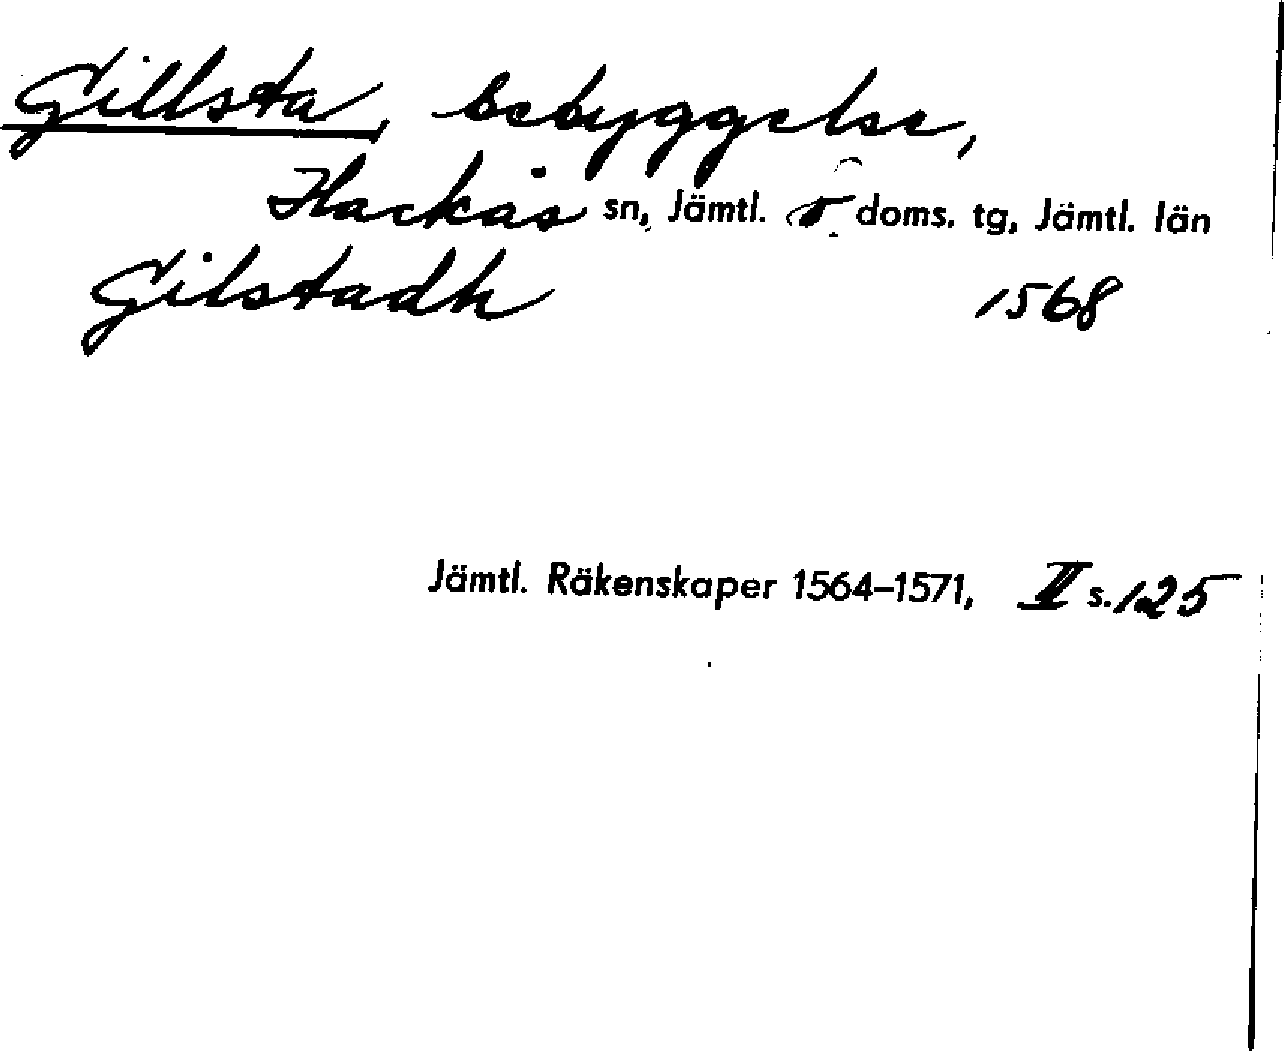 Gillsta, bebyggelse,
Hackås sn, Jämtl. doms. tg, Jämtl. län
Gilstadh 1568
Jämtl. Räkenskaper 1564–1571, II s. 125